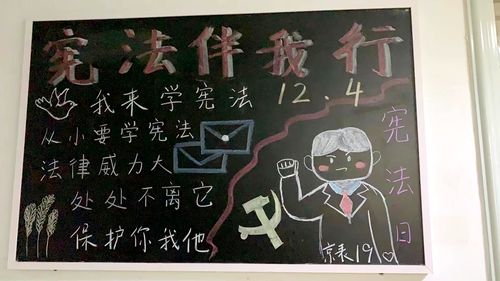 宪法伴我行
我来学宪法
12.4
从小要学宪法
法律威力大
处处不离它
保护你我他
宪法日